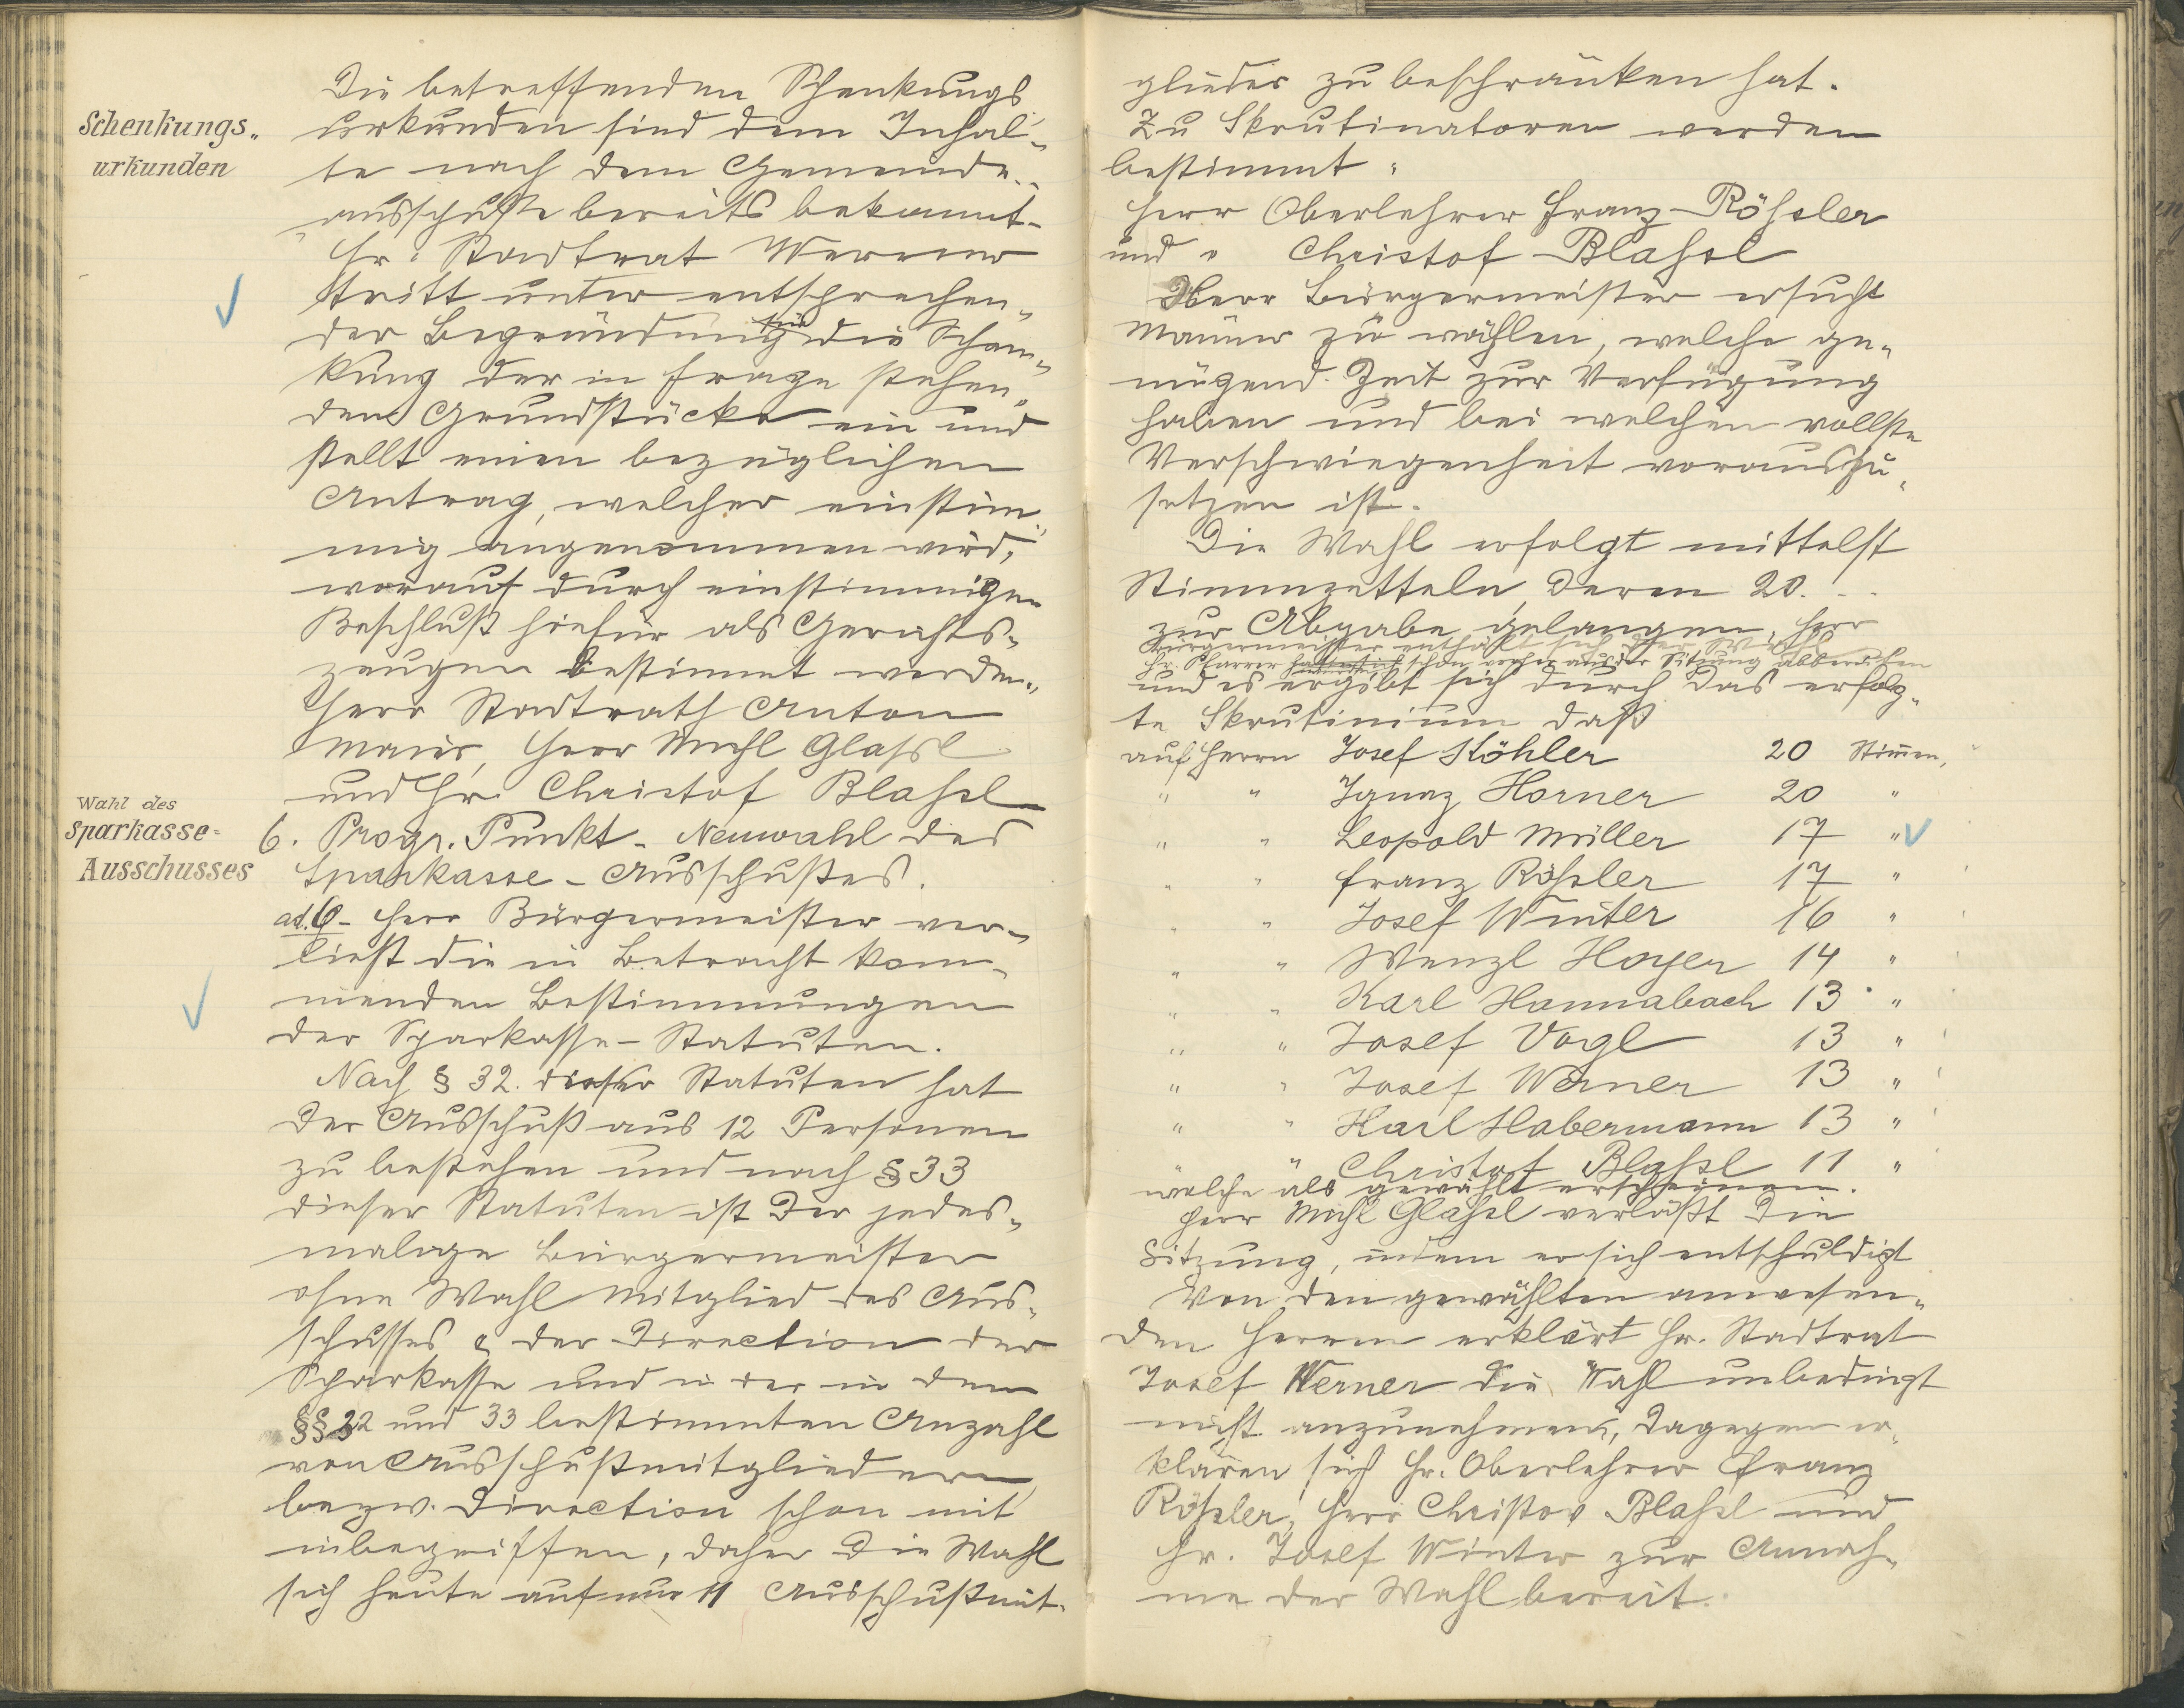 Die betreffenden Schenkungs
Schenkungs„
urkunden sind dem Inhal„
urkunden
te nach dem Gemeinde„
ausschuße bereits bekannt.
Hr. Stadtrat Werner
tritt unter entsprechen„
der Begründung für die Schen„
kung der in Frage stehen„
den Grundstücke ein und
stellt einen bezüglichen
Antrag, welcher einstim„
mig angenommen wird,
worauf durch einstimmigen
Beschluß hiefür als Gerichts„
zeugen bestimmt werden„
Herr Stadtrath Anton
Maier, Herr Michl Glaßl
und Hr. Christof Blahsl
Wahl des
Sparkasse=
Ausschusses
6. Progr. Punkt - Neuwahl des
Sparkasse-Ausschußes.
ad. 6- Herr Bürgermeister ver„
liest die in Betracht kom„
menden Bestimmungen
der Sparkasse-Statuten.
Nach § 32. dieser Statuten hat
der Ausschuß aus 12 Personen
zu bestehen und nach § 33
dieser Statuten ist der jedes„
malige Bürgermeister
ohne Wahl Mitglied des Aus„
schusses & der Direction der
Sparkasse und in der in den
§§ 32 und 33 bestimmten Anzahl
von Ausschußmitgliedern
bezw. Direction schon mit
inbegriffen, daher die Wahl
sich heute auf nur 11 Ausschußmit„
glieder zu beschränken hat.
Zu Skrutinatoren werden
bestimmt:
Herr Oberlehrer Franz Röhsler
und " Christof Blahsl
Herr Bürgermeister ersucht
Männer zu wählen, welche ge„
nügend Zeit zur Verfügung
haben und bei welchen vollste
Verschwiegenheit vorauszu„
setzen ist.
Die Wahl erfolgt mittelst
Stimmzetteln, deren 20.
zur Abgabe gelangen, Herr
Bürgermeister enthält sich der Wahl
Hr. Pfarrer schon vorher aus der Sitzung abberufen
und es ergibt sich durch das erfolg„
te Skrutinium daß
auf Herrn Josef Köhler 20 Stimmen,
" " Ignaz Horner 20 "
" " Leopold Müller 17 "
" " Franz Röhsler 17 "
" " Josef Winter 16 "
" " Wenzl Hoyer 14 "
" " Karl Hannabach 13 "
" " Josef Vogl 13 "
" " Josef Werner 13 "
" " Karl Habermann 13 "
" " Christof Blahsl 11 "
welche als gewählt erscheinen.
Herr Michl Glahsl verläßt die
Sitzung, indem er sich entschuldigt
Von den gewählten anwesen„
den Herren erklärt Hr. Stadtrat
Josef Werner die Wahl unbedingt
nicht anzunehmen, dagegen er„
klären sich Hr. Oberlehrer Franz
Röhsler, Herr Christov Blahsl und
Hr. Josef Winter zur Annah„
me der Wahl bereit.